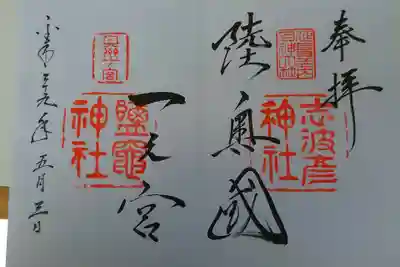 奉拝
志波彦神社
陸奥國
一之宮
鹽竈神社
平成二十九年五月三日